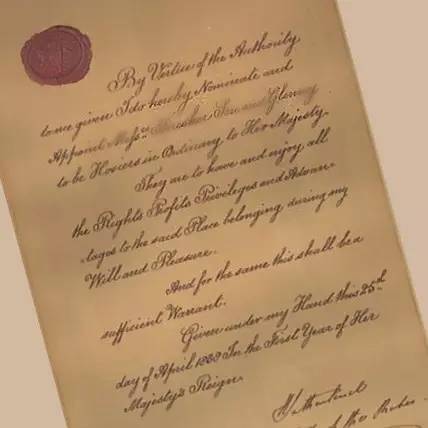 By Vertue of the Authority
to me given I do hereby Nominate and
Appoint Messrs and
to be Hosiers in Ordinary to Her Majesty.
They are to have and enjoy all
the Rights Profits Privileges and Advan-
tages to the said Place belonging during my
Will and Pleasure.
And for the same this shall be a
sufficient Warrant.
Given under my Hand this 25th
day of April 1838 In the First Year of Her
Majesty's Reign.